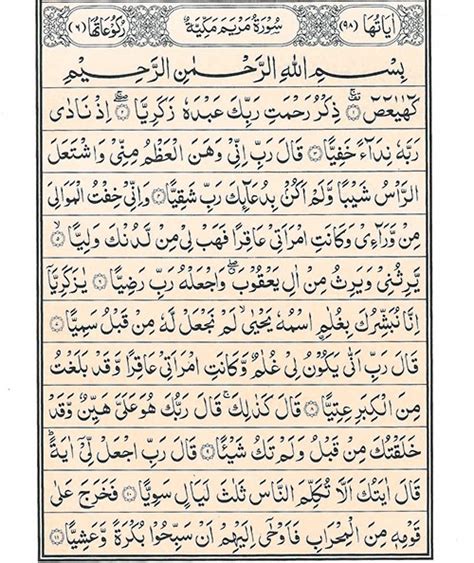 اٰیَاتُهَا (۹۸) سُوْرَةُ مَرْیَمَ مَكِّیَّةٌ رُكُوْعَاتُهَا (۶)
بِسْمِ اللّٰهِ الرَّحْمٰنِ الرَّحِیْمِ
كٓهٰیٰعٓصٓ ۚ۱ ذِكْرُ رَحْمَتِ رَبِّكَ عَبْدَهٗ زَكَرِیَّا ۖۚ۲ اِذْ نَادٰى
رَبَّهٗ نِدَآءً خَفِیًّا ۳ قَالَ رَبِّ اِنِّیْ وَهَنَ الْعَظْمُ مِنِّیْ وَاشْتَعَلَ
الرَّاْسُ شَیْبًا وَّلَمْ اَكُنْۢ بِدُعَآىِٕكَ رَبِّ شَقِیًّا ۴ وَاِنِّیْ خِفْتُ الْمَوَالِیَ
مِنْ وَّرَآءِیْ وَكَانَتِ امْرَاَتِیْ عَاقِرًا فَهَبْ لِیْ مِنْ لَّدُنْكَ وَلِیًّا ۙ۵
یَّرِثُنِیْ وَیَرِثُ مِنْ اٰلِ یَعْقُوْبَ ۖ وَاجْعَلْهُ رَبِّ رَضِیًّا ۶ یٰزَكَرِیَّآ
اِنَّا نُبَشِّرُكَ بِغُلٰمِ ِ۟اسْمُهٗ یَحْیٰى ۙ لَمْ نَجْعَلْ لَّهٗ مِنْ قَبْلُ سَمِیًّا ۷
قَالَ رَبِّ اَنّٰى یَكُوْنُ لِیْ غُلٰمٌ وَّكَانَتِ امْرَاَتِیْ عَاقِرًا وَّقَدْ بَلَغْتُ
مِنَ الْكِبَرِ عِتِیًّا ۸ قَالَ كَذٰلِكَ ۚ قَالَ رَبُّكَ هُوَ عَلَیَّ هَیِّنٌ وَّقَدْ
خَلَقْتُكَ مِنْ قَبْلُ وَلَمْ تَكُ شَیْـًٔا ۹ قَالَ رَبِّ اجْعَلْ لِّیْٓ اٰیَةً ؕ
قَالَ اٰیَتُكَ اَلَّا تُكَلِّمَ النَّاسَ ثَلٰثَ لَیَالٍ سَوِیًّا ۱۰ فَخَرَجَ عَلٰى
قَوْمِهٖ مِنَ الْمِحْرَابِ فَاَوْحٰٓى اِلَیْهِمْ اَنْ سَبِّحُوْا بُكْرَةً وَّعَشِیًّا ۱۱